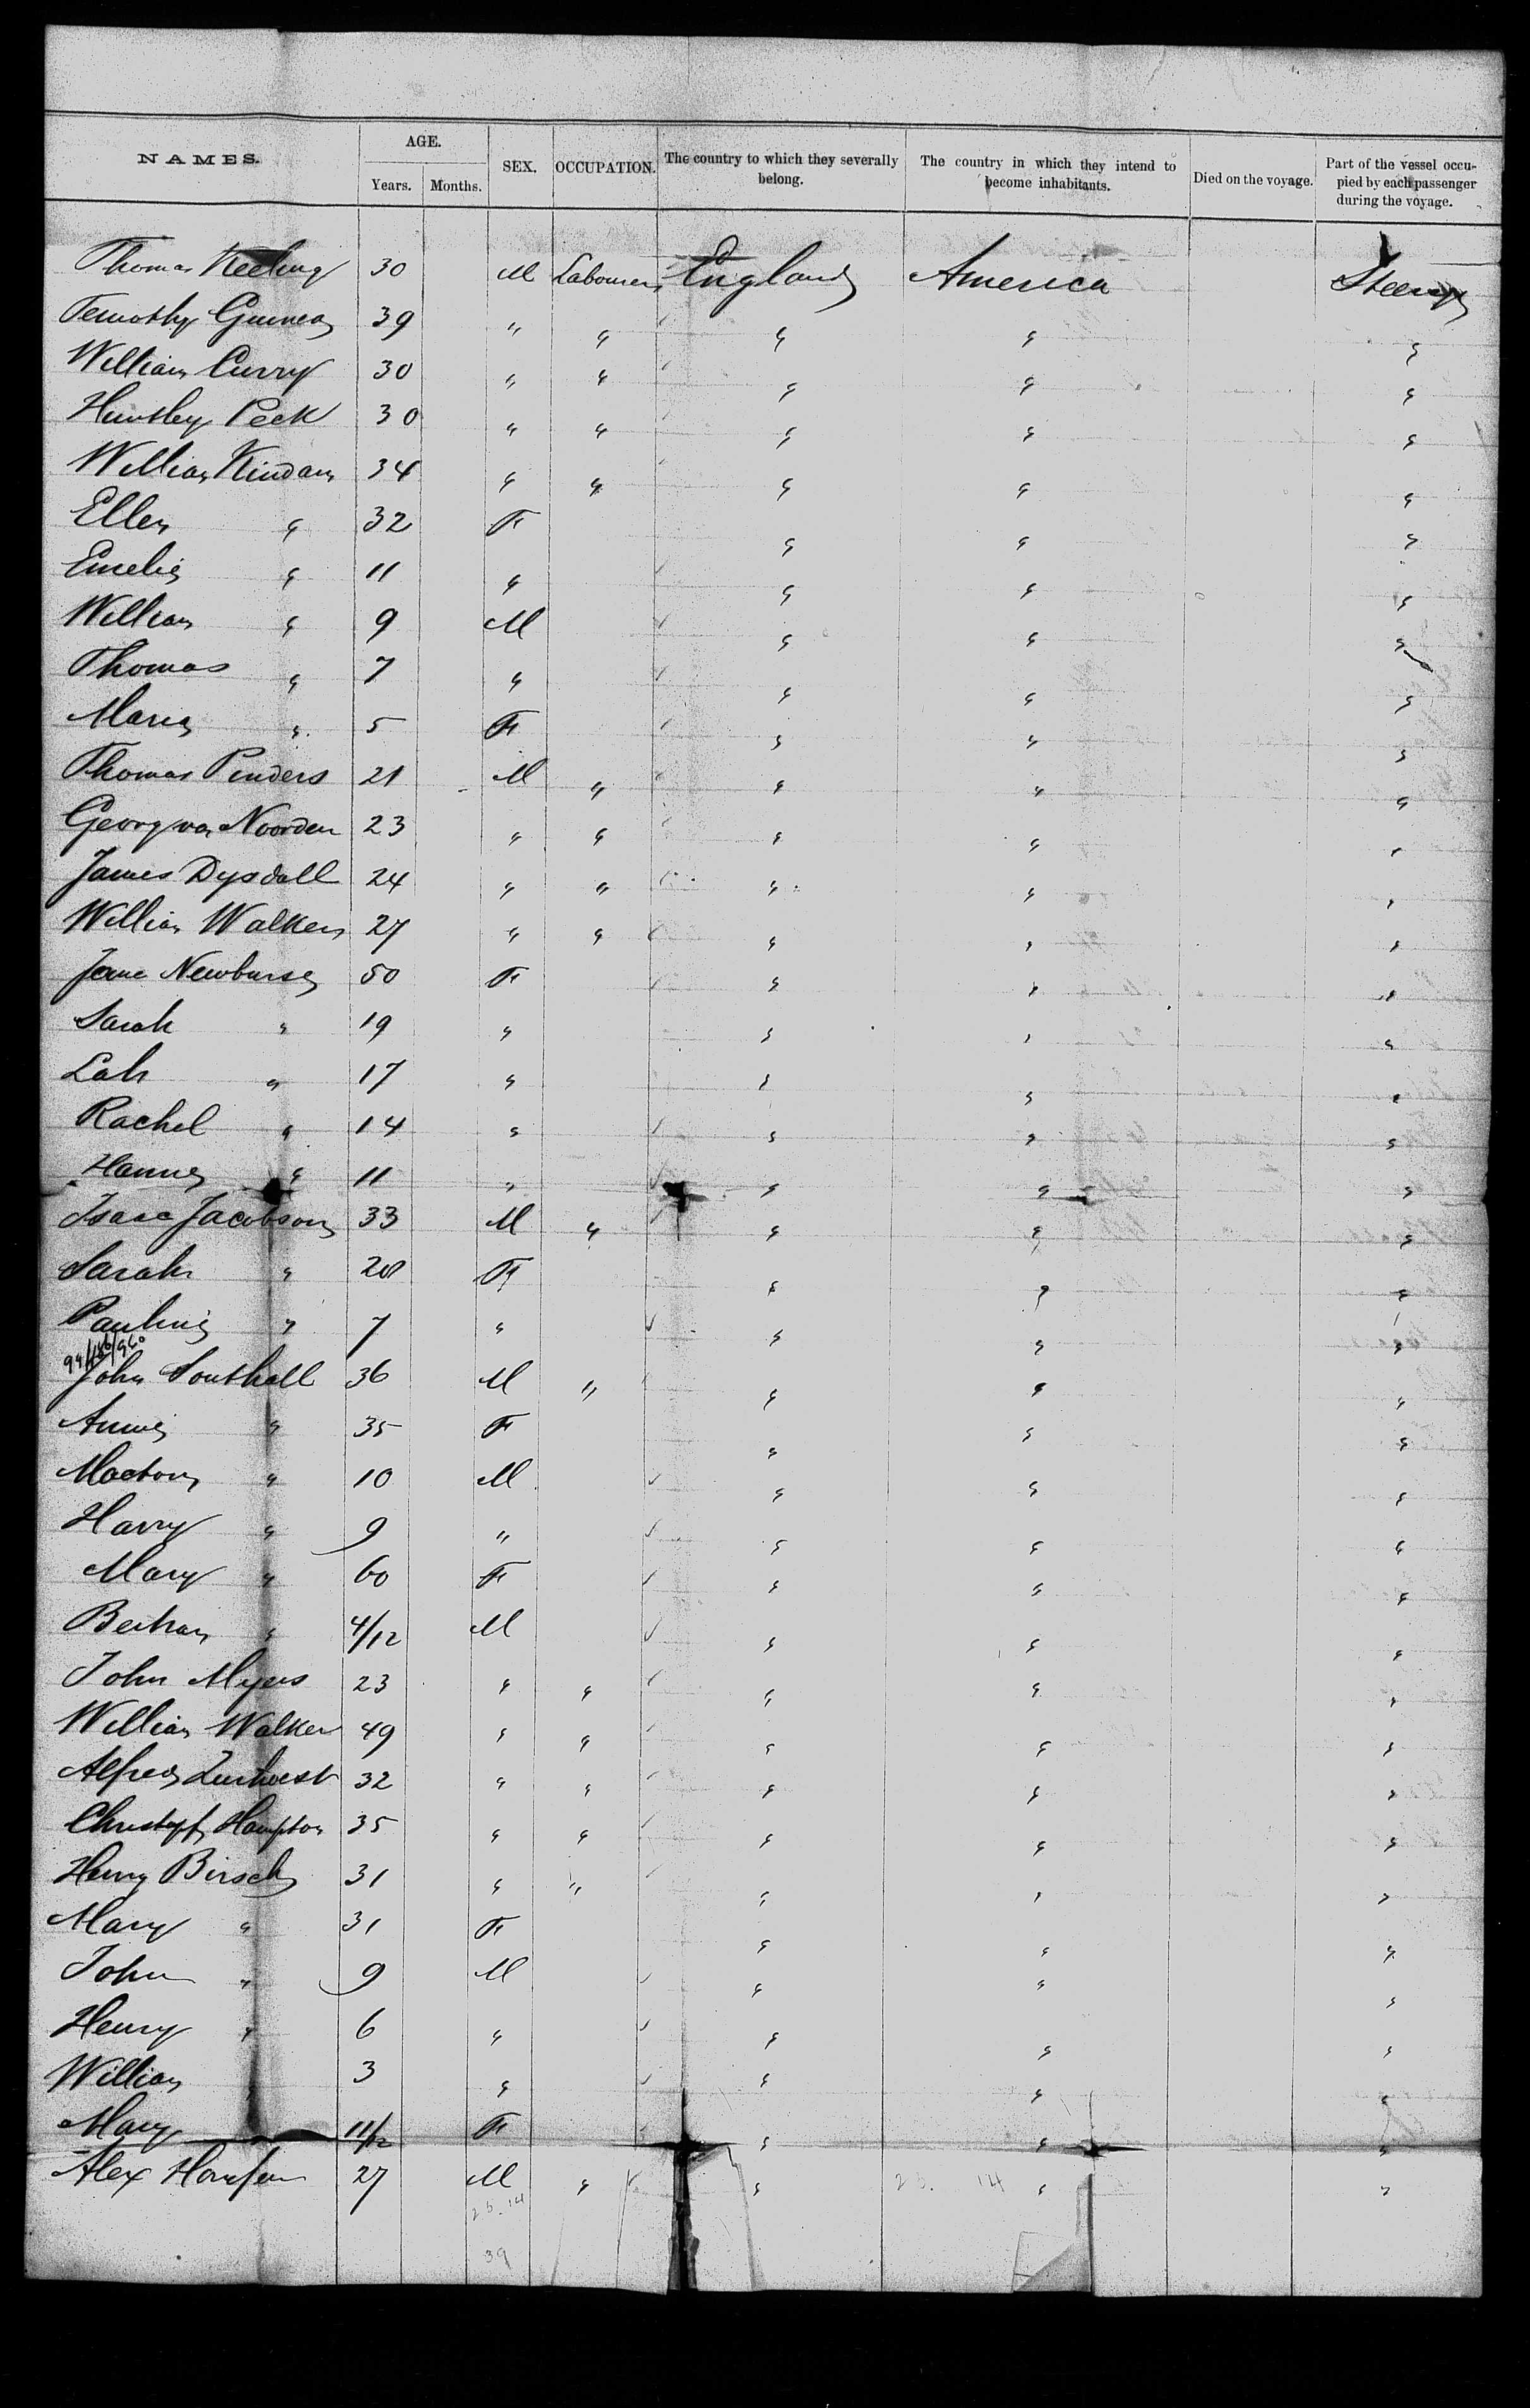 NAMES. AGE. SEX. OCCUPATION. The country to which they severally belong. The country in which they intend to become inhabitants. Died on the voyage. Part of the vessel occupied by each passenger during the voyage.
Years. Months.
Thomas Keeling 30 M Labourer England America Steerage
Temothy Guinea 39 " " " " "
William Curry 30 " " " " "
Huntley Peck 30 " " " " "
William Kindam 34 " " " " "
Ellen " 32 F " " "
Emelie " 11 " " " "
William " 9 M " " "
Thomas " 7 " " " "
Maria " 5 F " " "
Thomas Pinders 21 M " " " "
Georg van Noorden 23 " " " " "
James Dysdall 24 " " " " "
William Walker 27 " " " " "
Jane Newburse 50 F " " "
Sarah " 19 " " " "
Lah " 17 " " " "
Rachel " 14 " " " "
Hanne " 11 " " " "
Isaac Jacobson 33 M " " " "
Sarah " 28 F " " "
Pauline " 7 " " " "
John Southall 36 M " " " "
Annie " 35 F " " "
" 10 M " " "
Harry " 9 " " " "
Mary " 60 F " " "
Bertran " 4/12 M " " "
John Myers 23 " " " " "
William Walker 49 " " " " "
Alfred 32 " " " " "
Christoph Hampton 35 " " " " "
Henry Birsch 31 " " " " "
Mary " 31 F " " "
John " 9 M " " "
Henry " 6 " " " "
William " 3 " " " "
Mary 11/12 F " " "
Alex 27 M " " " "
25.14 25. 14
39